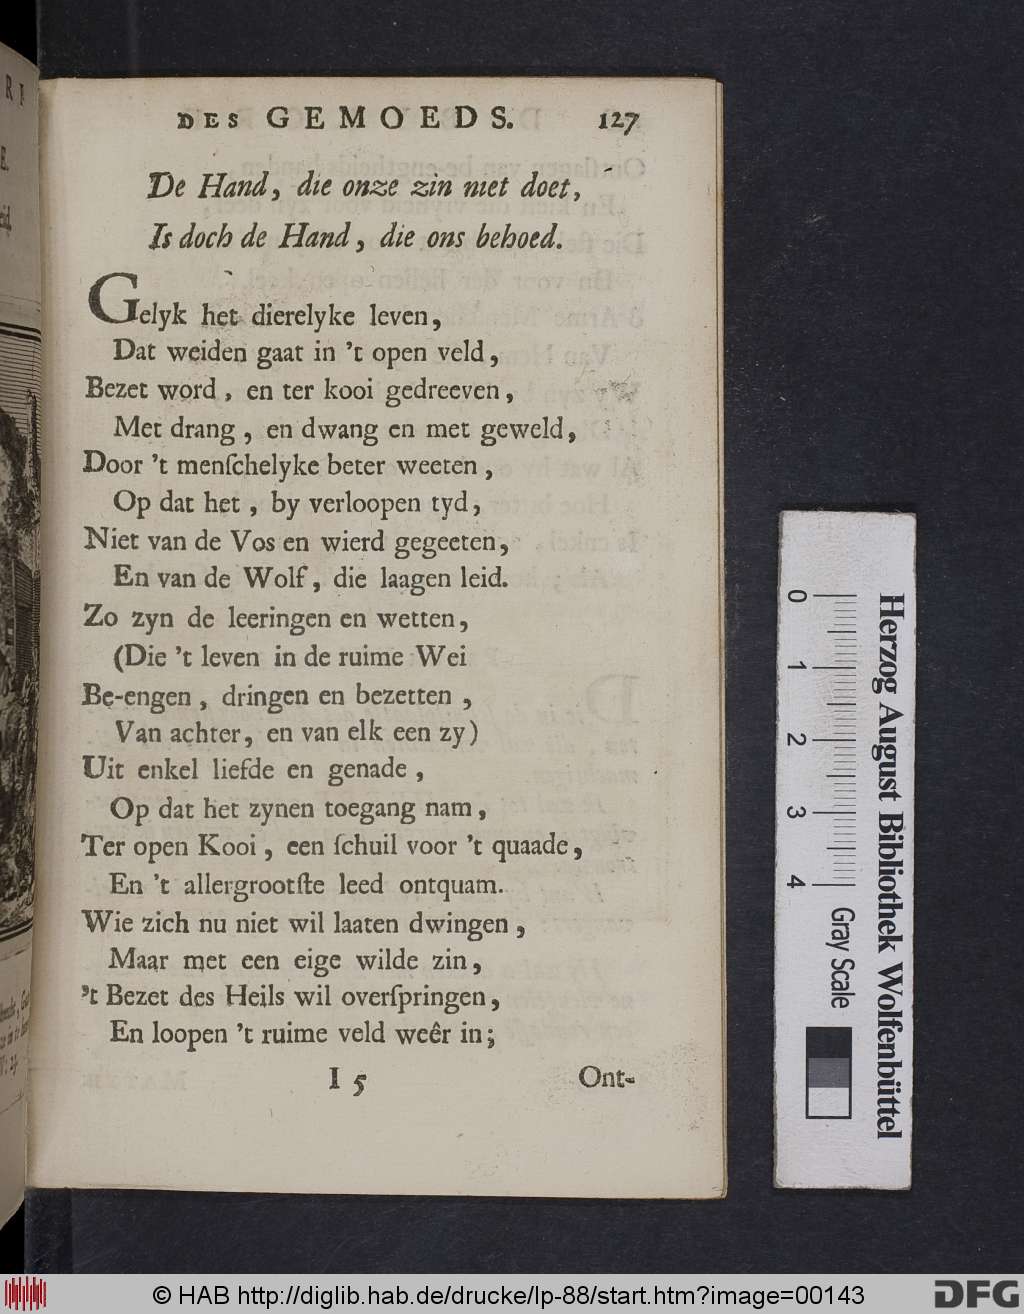 DES GEMOEDS. 127
De Hand, die onze zin niet doet,
Is doch de Hand, die ons behoed.
Gelyk het dierelyke leven,
Dat weiden gaat in 't open veld,
Bezet word, en ter kooi gedreeven,
Met drang, en dwang en met geweld,
Door 't menſchelyke beter weeten,
Op dat het, by verloopen tyd,
Niet van de Vos en wierd gegeeten,
En van de Wolf, die laagen leid.
Zo zyn de leeringen en wetten,
(Die 't leven in de ruime Wei
Be-engen, dringen en bezetten,
Van achter, en van elk een zy)
Uit enkel liefde en genade,
Op dat het zynen toegang nam,
Ter open Kooi, een ſchuil voor 't quaade,
En 't allergrootſte leed ontquam.
Wie zich nu niet wil laaten dwingen,
Maar met een eige wilde zin,
't Bezet des Heils wil overſpringen,
En loopen 't ruime veld weêr in;
I 5 Ont-
Herzog August Bibliothek Wolfenbüttel
0 1 2 3 4 Gray Scale
© HAB http://diglib.hab.de/drucke/lp-88/start.htm?image=00143
DFG